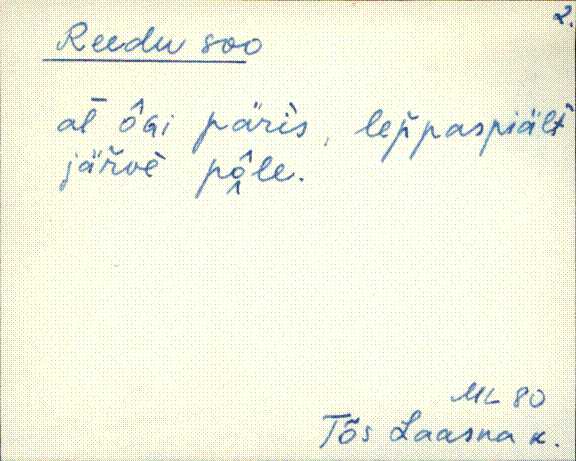 2.
Reedu soo
at̄ ôGi pärìs, lep̌paspiält
jäřvè pô̭le.
ML 80
Tõs Laasna k.